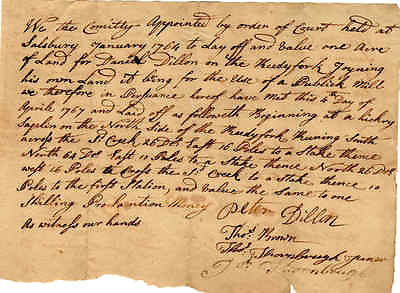 We the Comitty Appointed by order of Court held at
Salsbury January 1764 to Lay off and Value one Acre
of Land for Daniel Dillon on the Reedyfork Joyning
his own Land it being for the Use of a Publick Mill
we therefore in Pursuance hereof have Met this 4th Day of
April 1767 and Laid off as followeth Beginning at a hickry
Saplin on the North Side of the Reedyfork Runing South
across the Sd Creek 26 Dst East 16 Poles to a Stake thence
North 64 Dst East 10 Poles to a Stake thence North 26 Dst
west 16 Poles to Cross the Sd Creek to a Stake thence 10
Poles to the first Station, and Value the Same to one
Shilling Proclamtion Money
Peter Dillon
As witness our hands
Thos. Brown
Thos. Thornbrough
Thornbrugh